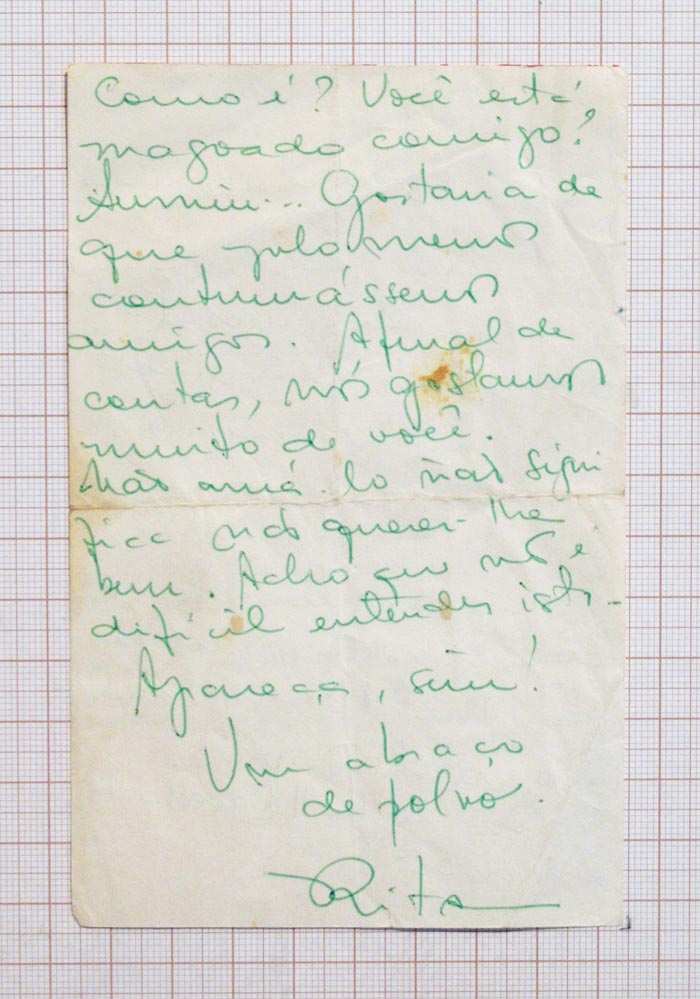 Como é? Você está
magoado comigo?
Sumiu... Gostaria de
que pelo menos
continuássemos
amigos. Afinal de
contas, nós gostamos
muito de você.
Não amá-lo não signi
fica não querer-lhe
bem. Acho que não é
difícil entender isto.
Apareça, sim!
Um abraço
de polvo.
Rita